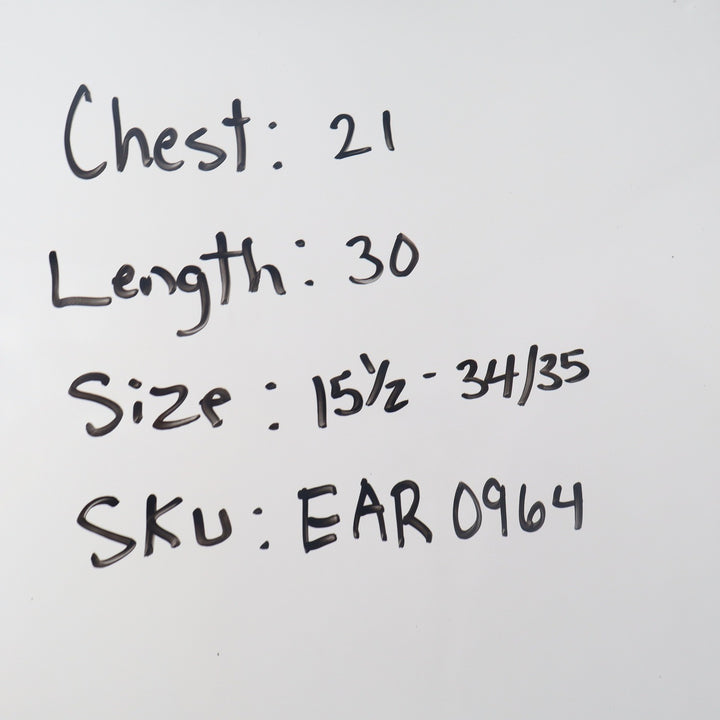 Chest: 21
Length: 30
Size: 15 1/2 - 34/35
SKU: EAR 0964